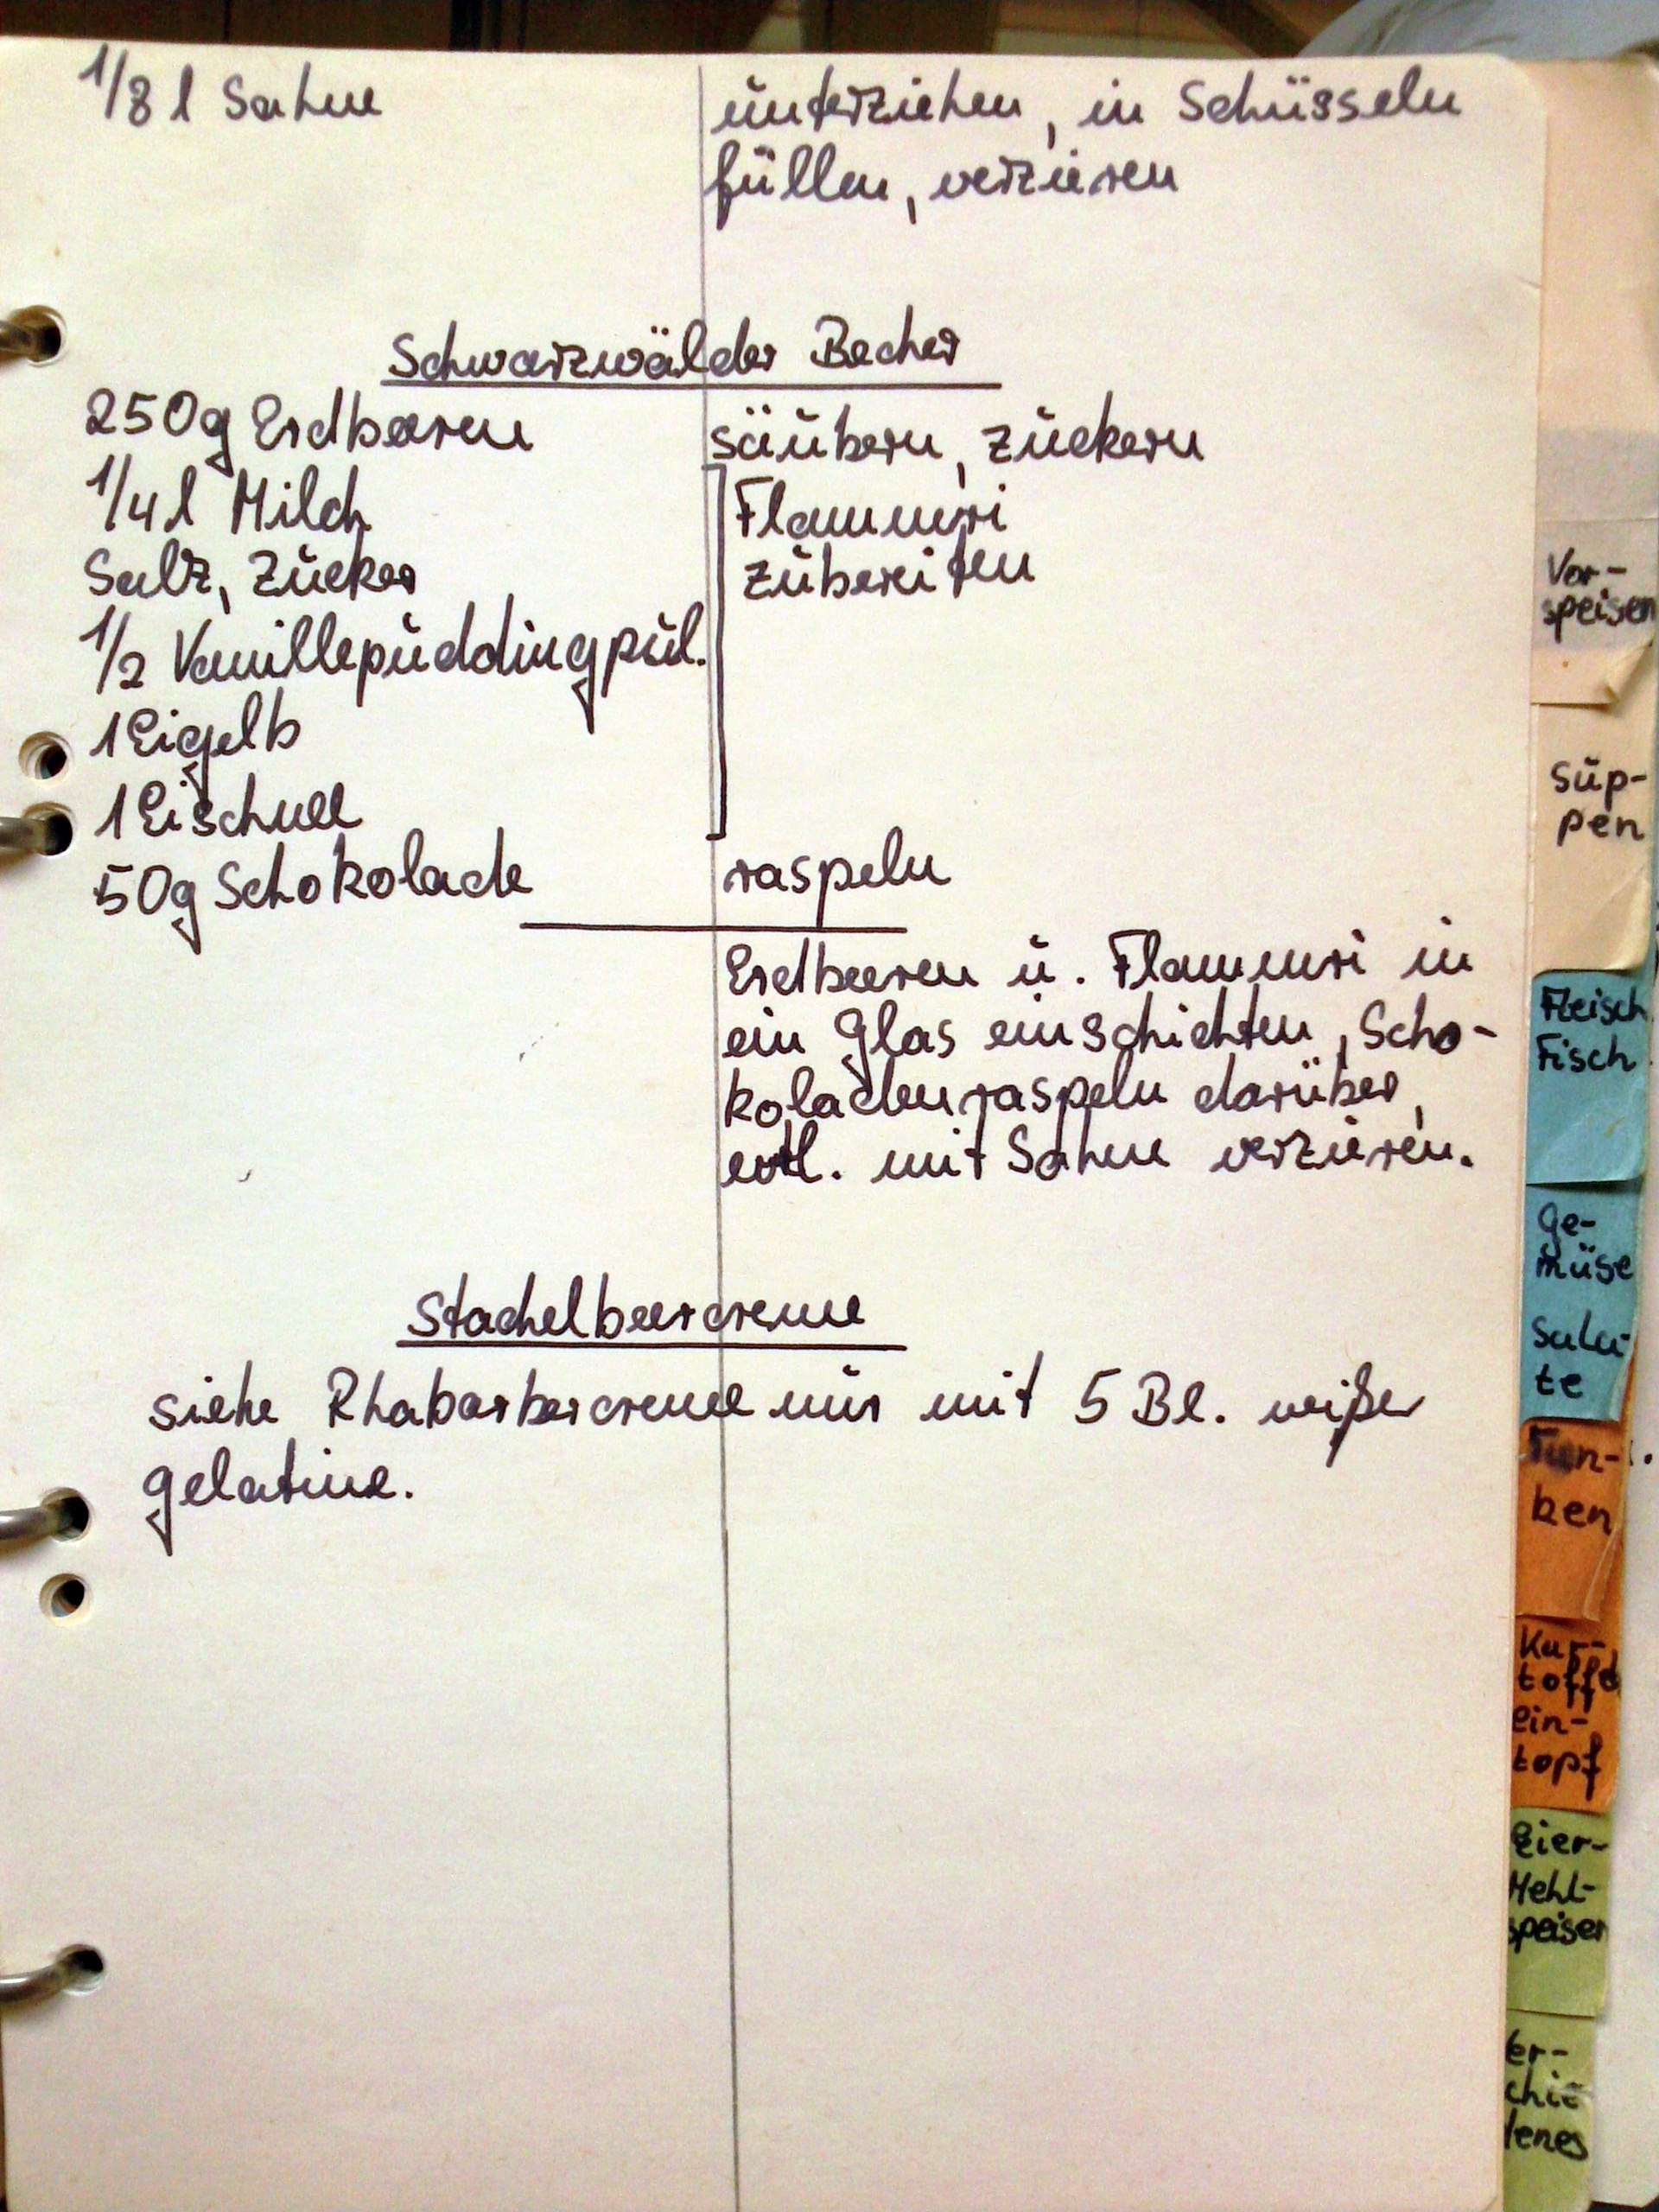 1/8 l Sahne
unterziehen, in Schüsseln
füllen, verzieren
Schwarzwälder Becher
250g Erdbeeren
säubern, zuckern
1/4 l Milch
Flammeri
Salz, Zucker
zubereiten
1/2 Vanillepuddingpul.
1 Eigelb
1 Eischnee
50g Schokolade
raspeln
Erdbeeren u. Flammeri in
ein Glas einschichten, Scho-
koladenraspeln darüber,
evtl. mit Sahne verzieren.
Stachelbeercreme
siehe Rhabarbercreme nur mit 5 Bl. weißer
Gelatine.
Vor-
speisen
Sup-
pen
Fleisch
Fisch
Ge-
müse
Sala-
te
Tun-
ken
Kar-
toffel
Ein-
topf
Eier-
Mehl-
speisen
er-
chie
denes